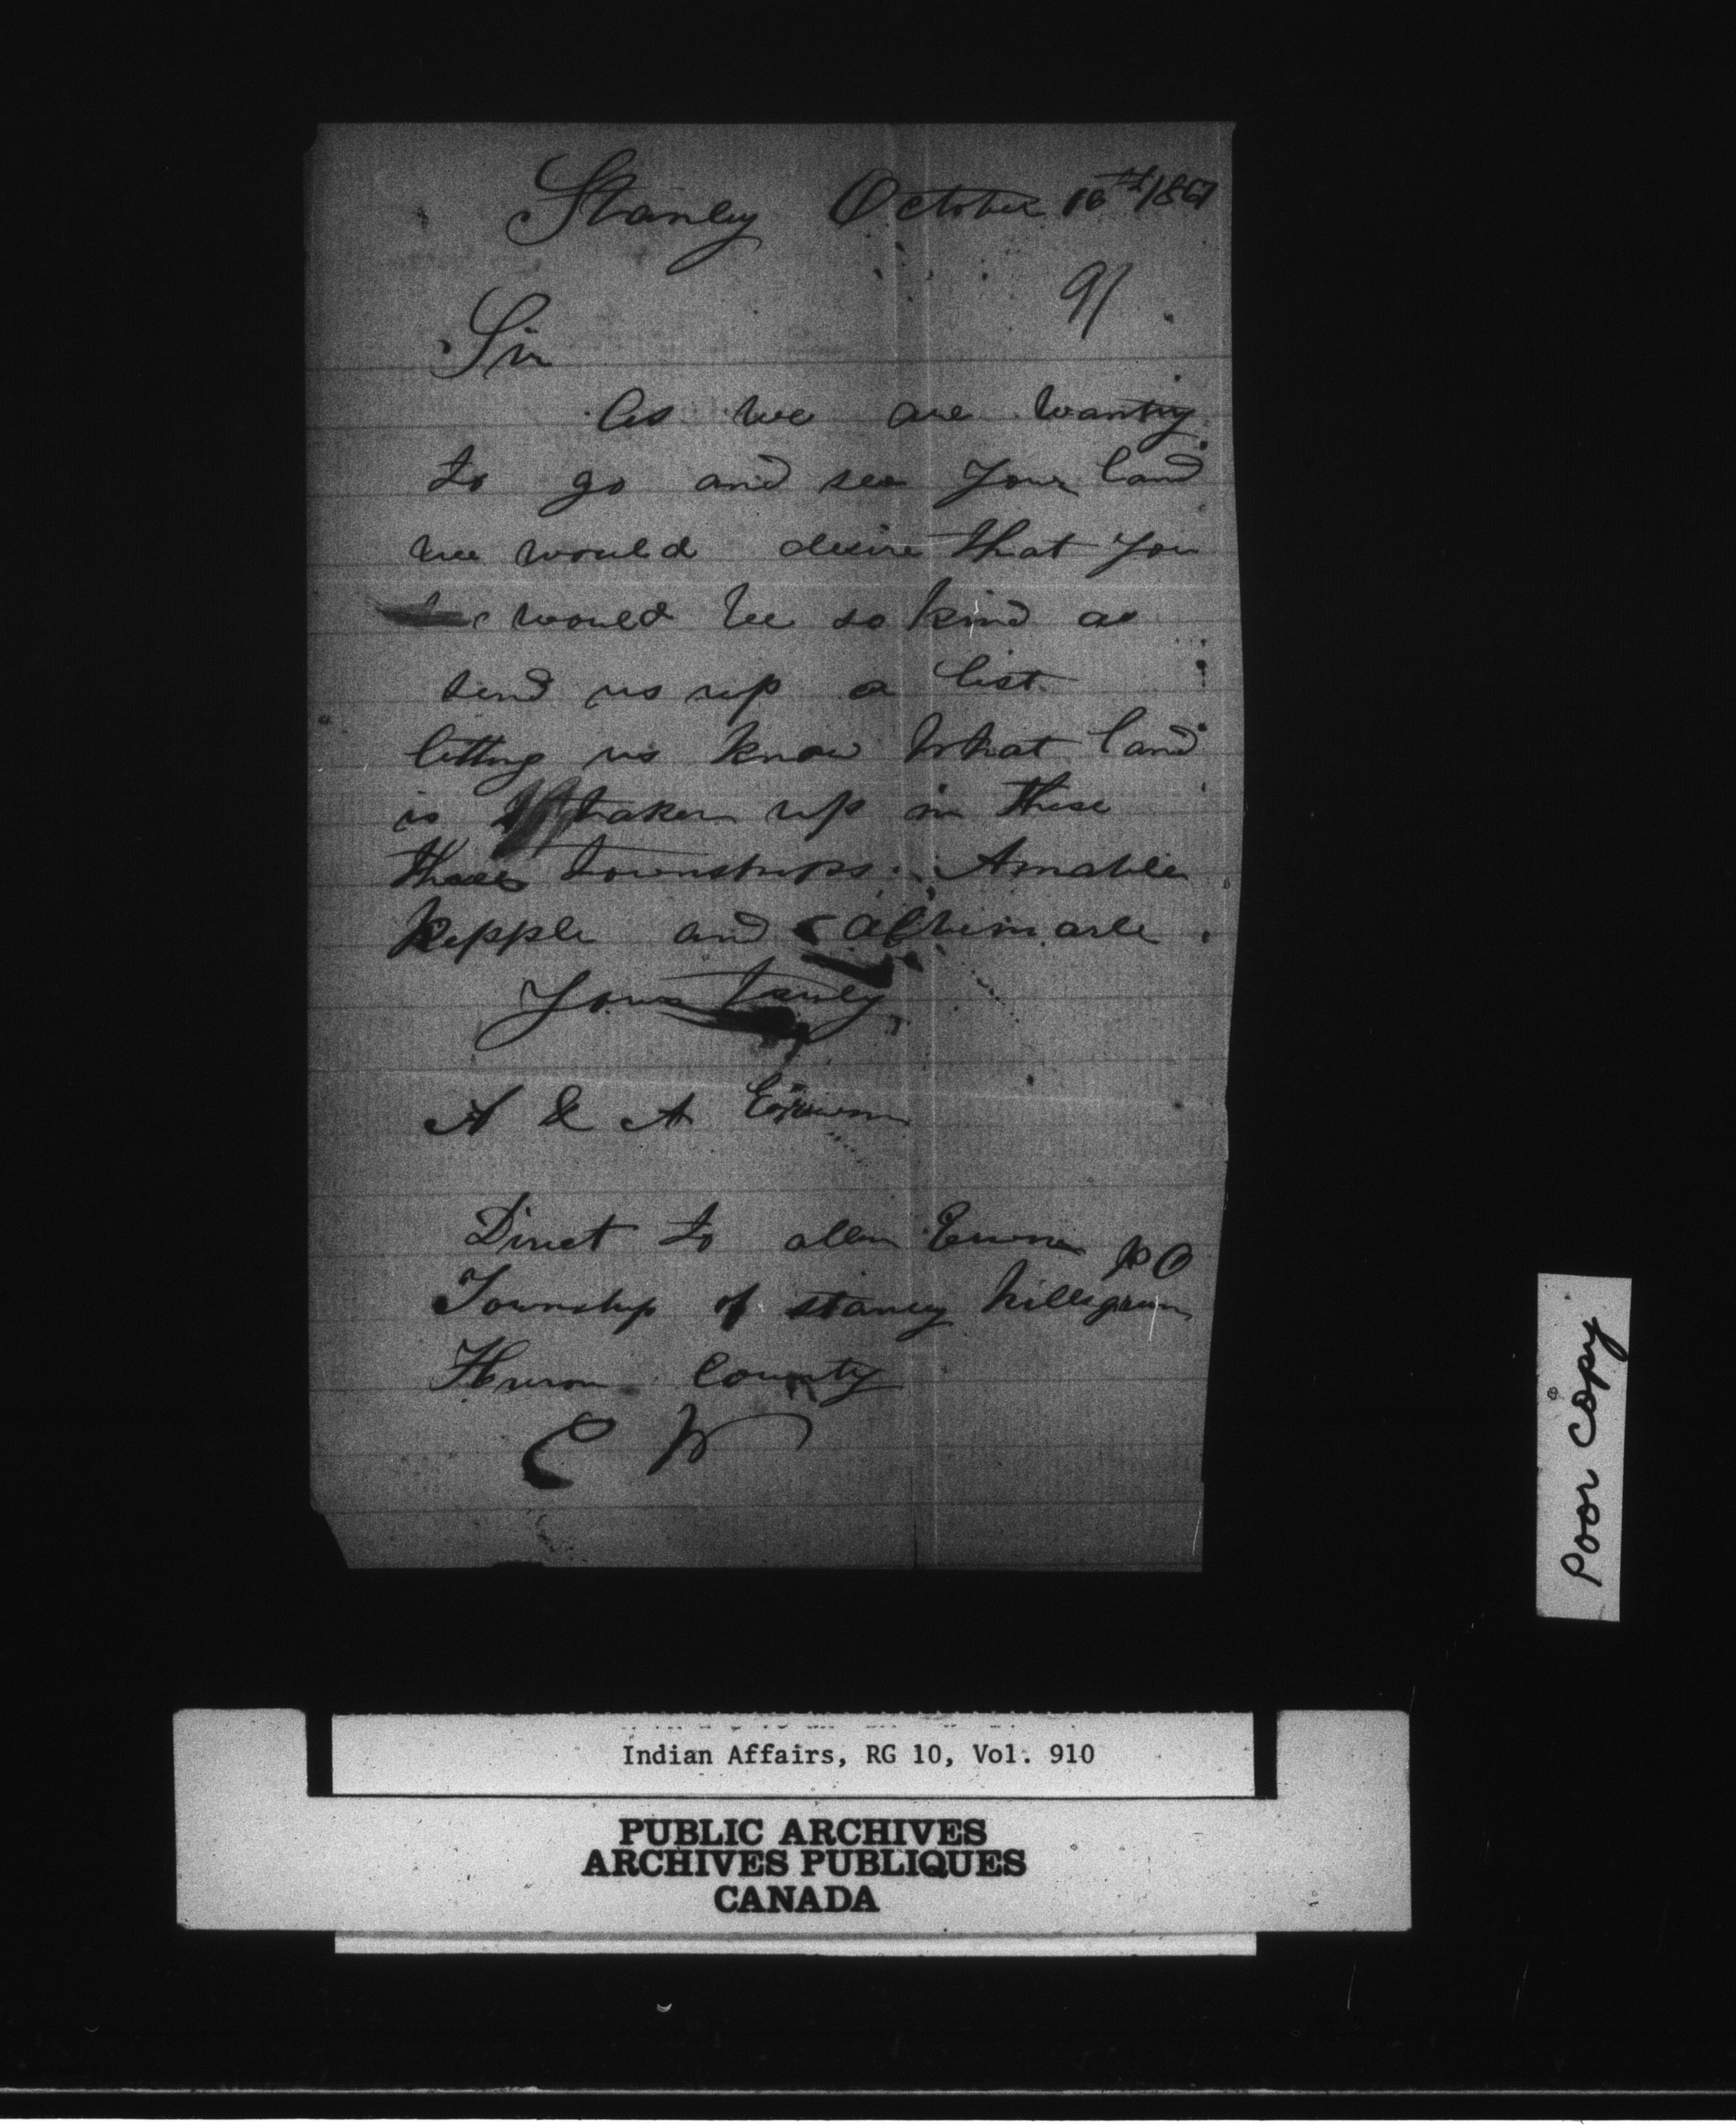 Stanley October 16th 1861
91
Sir
As we are wanting
to go and see your land
we would desire that you
would be so kind as
send us up a list
letting us know what land
is taken up in these
three townships Amable
Kepple and albimarle
Yours truly
A & A
Direct to allen P O
Township of stanley hillsgreen
Huron County
C W
Poor Copy
Indian Affairs, RG 10, Vol. 910
PUBLIC ARCHIVES
ARCHIVES PUBLIQUES
CANADA